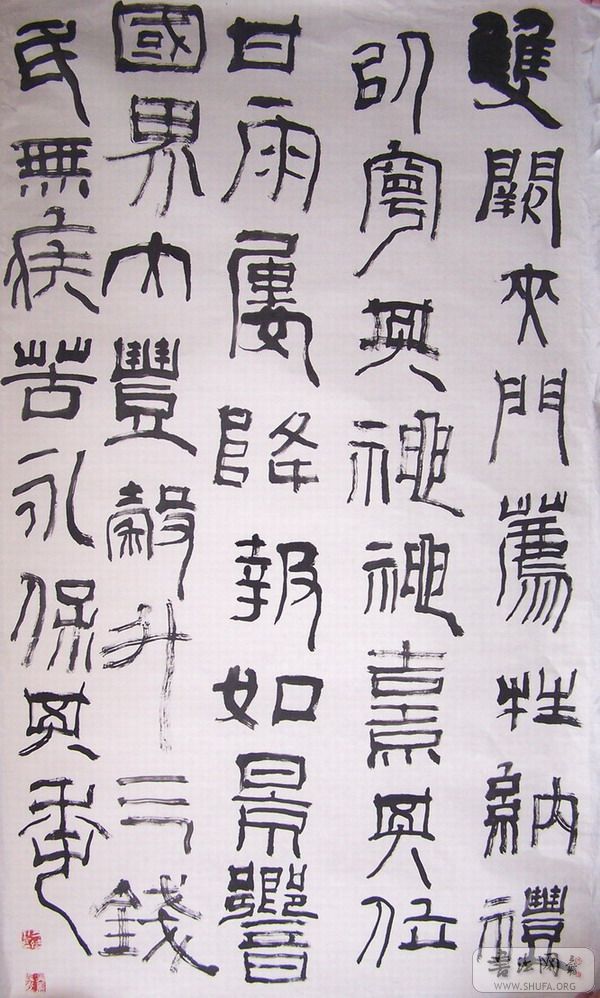 雙闕夾門薦牲納禮
以寧其神神熹其位
甘雨屢降報如景響
國界大豐穀斗三錢
民無疾苦永保其年
書法网
WWW.SHUFA.ORG